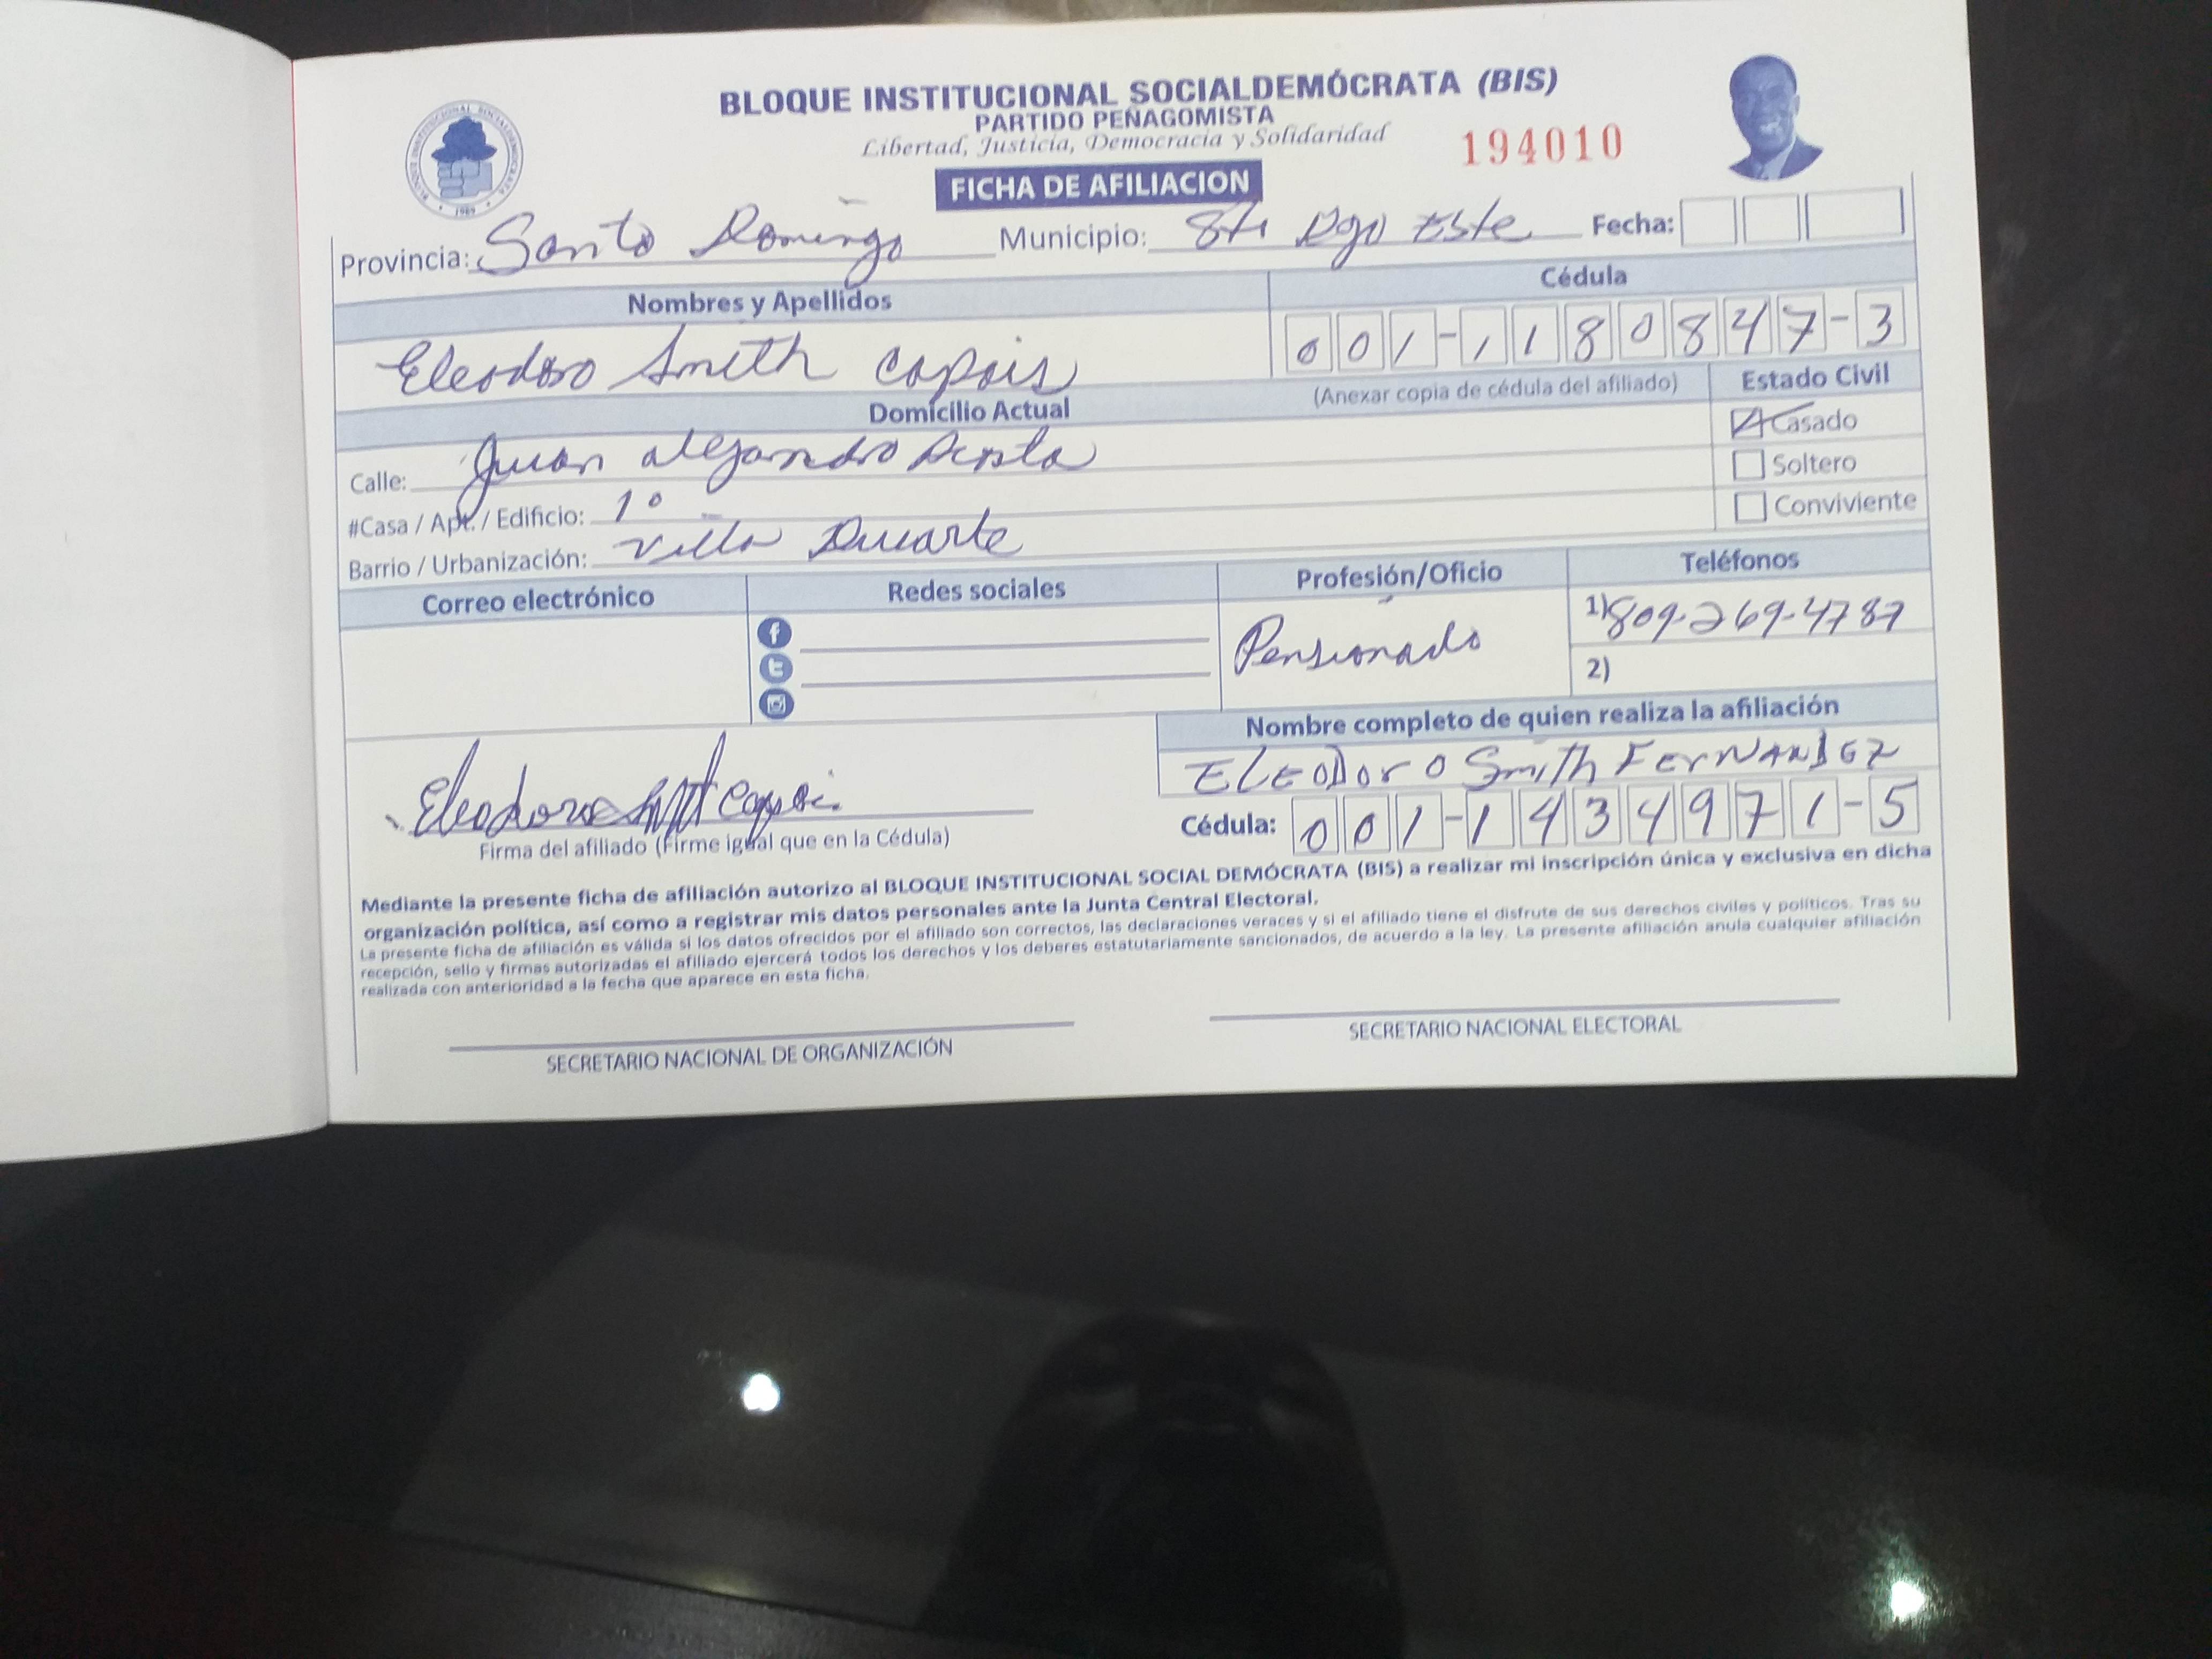 BLOQUE INSTITUCIONAL SOCIALDEMÓCRATA (BIS)
PARTIDO PEÑAGOMISTA
Libertad, Justicia, Democracia y Solidaridad
194010
FICHA DE AFILIACION
BLOQUE INSTITUCIONAL SOCIALDEMOCRATA
1989
Provincia: Santo Domingo Municipio: Sto Dgo Este Fecha:
Nombres y Apellidos Cédula
Eleodoro Smith Capois 001-1180847-3
Domicilio Actual (Anexar copia de cédula del afiliado) Estado Civil
Calle: Juan alejandro Acosta Casado
#Casa / Apt. / Edificio: 1º Soltero
Barrio / Urbanización: Villa Duarte Conviviente
Correo electrónico Redes sociales Profesión/Oficio Teléfonos
Pensionado 1) 809-269-4787
2)
Nombre completo de quien realiza la afiliación
ELEODoro Smith FerNANDEZ
Eleodoro Smith Capois
Cédula: 001-1434971-5
Firma del afiliado (Firme igual que en la Cédula)
Mediante la presente ficha de afiliación autorizo al BLOQUE INSTITUCIONAL SOCIAL DEMÓCRATA (BIS) a realizar mi inscripción única y exclusiva en dicha
organización política, así como a registrar mis datos personales ante la Junta Central Electoral.
La presente ficha de afiliación es válida si los datos ofrecidos por el afiliado son correctos, las declaraciones veraces y si el afiliado tiene el disfrute de sus derechos civiles y políticos. Tras su
recepción, sello y firmas autorizadas el afiliado ejercerá todos los derechos y los deberes estatutariamente sancionados, de acuerdo a la ley. La presente afiliación anula cualquier afiliación
realizada con anterioridad a la fecha que aparece en esta ficha.
SECRETARIO NACIONAL DE ORGANIZACIÓN SECRETARIO NACIONAL ELECTORAL